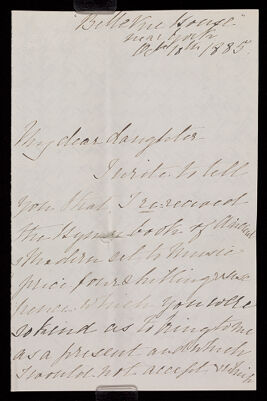 "Bellevue House"
near York
Oct 18th 1885.
My dear daughter
I write to tell
you that I received
the Hymn book of Ancient
& Modern set to music
price four shillings & six
pence which you were
so kind as to bring to me
as a present and which
I would not accept